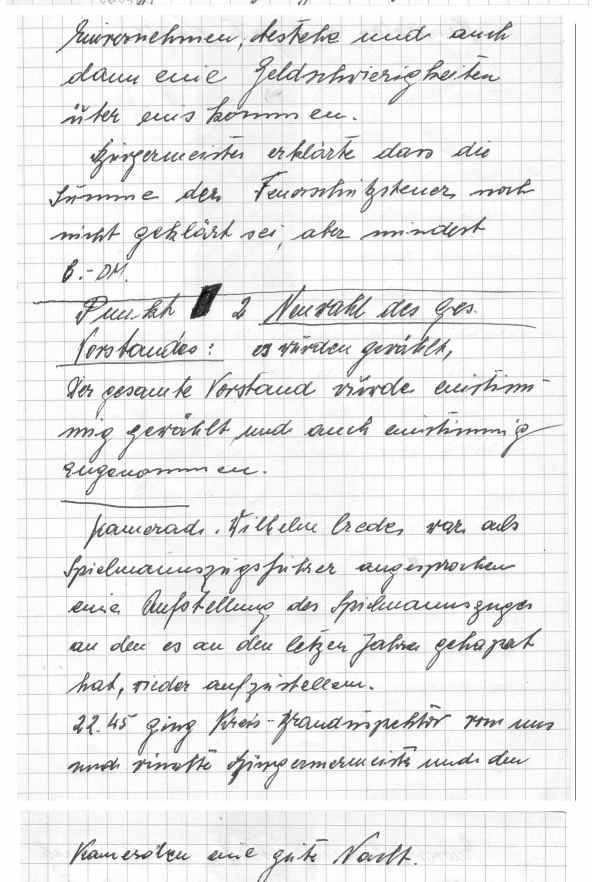 Einvernehmen, bestehe und auch
dann eine Geldschwierigkeiten
über uns kommen.
Bürgermeister erklärte dass die
Summe der Feuerschutzsteuer noch
nicht geklärt sei, aber mindest
6.- DM.
Punkt 2 Neuwahl des ges.
Vorstandes: es wurden gewählt,
Der gesamte Vorstand wurde einstim-
mig gewählt und auch einstimmig
angenommen.
Kamerad. Wilhelm Bredes war als
Spielmannszugsführer angesprochen
eine Aufstellung des Spielmannszuges
an den es an den letzen Jahren gehapat
hat, wieder aufzustellen.
22.45 ging Kreis-Brandinspektor von uns
und Bürgermermeister und den
Kameraden eine gute Nacht.